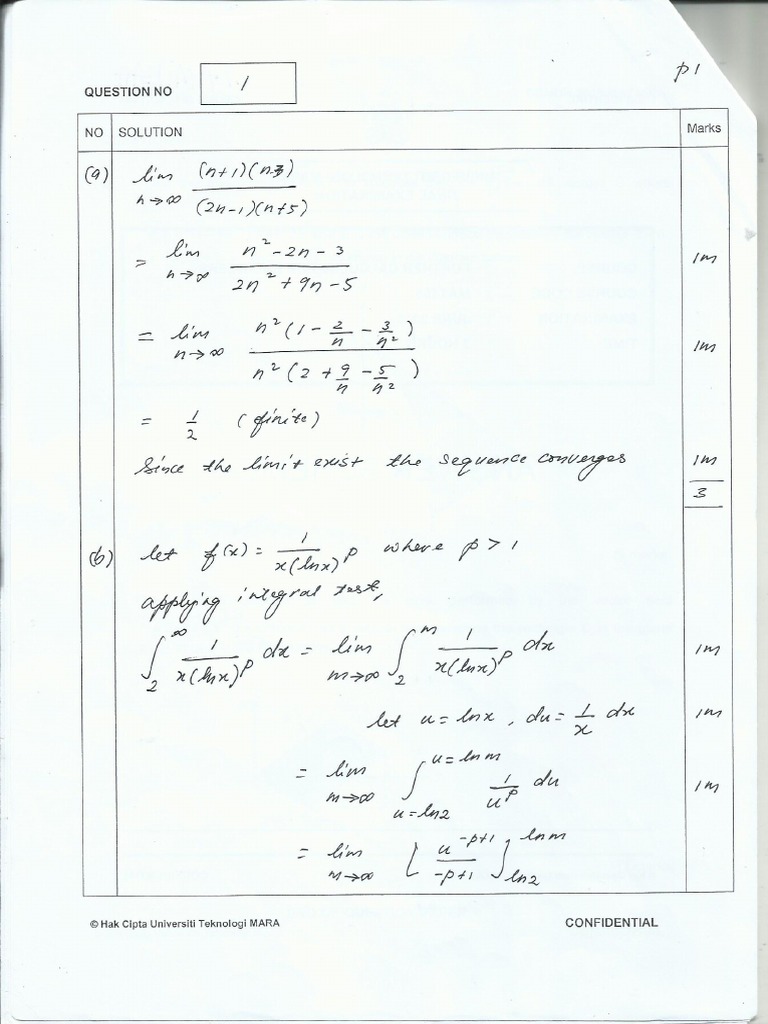 p1
QUESTION NO 1
NO SOLUTION Marks
(a) lim n→∞ (n+1)(n-3) / (2n-1)(n+5)
= lim n→∞ n² - 2n - 3 / 2n² + 9n - 5 1m
= lim n→∞ n²(1 - 2/n - 3/n²) / n²(2 + 9/n - 5/n²) 1m
= 1/2 (finite)
Since the limit exist the sequence converges 1m
3
(b) let f(x) = 1/x(lnx)^p where p > 1
applying integral test,
∫₂^∞ 1/x(lnx)^p dx = lim m→∞ ∫₂^m 1/x(lnx)^p dx 1m
let u = lnx, du = 1/x dx 1m
= lim m→∞ ∫_{u=ln2}^{u=lnm} 1/u^p du 1m
= lim m→∞ [u^{-p+1}/-p+1]_{ln2}^{lnm}
© Hak Cipta Universiti Teknologi MARA CONFIDENTIAL